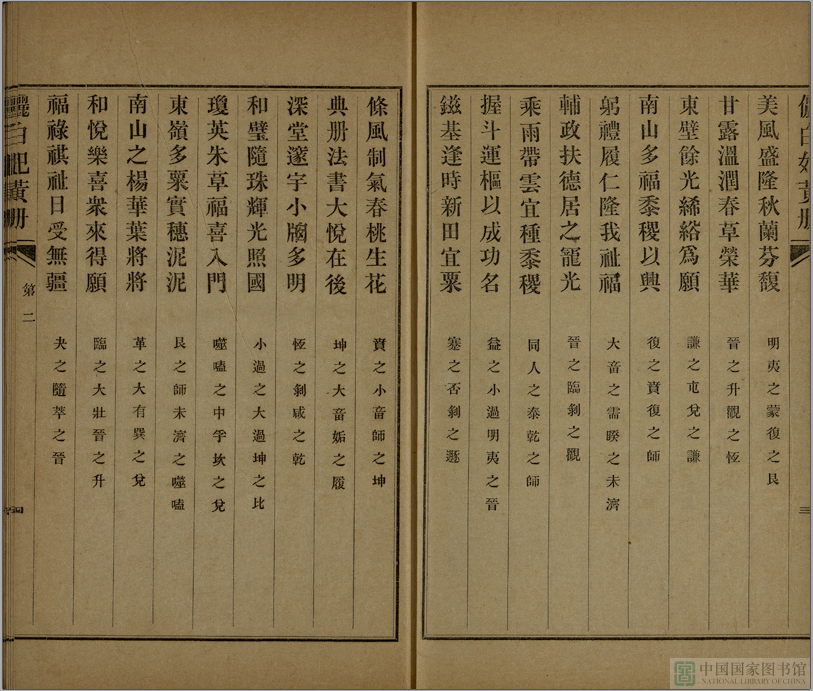 美風盛隆秋蘭芬馥 明夷之蒙復之艮
甘露溫潤春草榮華 晉之升觀之恆
東壁餘光絺綌爲願 謙之屯兌之謙
南山多福黍稷以興 復之賁復之師
躬禮履仁隆我祉福 大畜之需睽之未濟
輔政扶德居之寵光 晉之臨剝之觀
乘雨帶雲宜種黍稷 同人之泰乾之師
握斗運樞以成功名 益之小過明夷之晉
鎡基逢時新田宜粟 蹇之否剝之遯
條風制氣春桃生花 賁之小畜師之坤
典册法書大悅在後 坤之大畜姤之履
深堂邃宇小牖多明 恆之剝咸之乾
和璧隨珠輝光照國 小過之大過坤之比
瓊英朱草福喜入門 噬嗑之中孚坎之兌
東嶺多粟實穗泥泥 艮之師未濟之噬嗑
南山之楊華葉將將 革之大有巽之兌
和悅樂喜衆來得願 臨之大壯晉之升
福祿祺祉日受無疆 夬之隨萃之晉
白 黃册
第二
四
中国国家图书馆
NATIONAL LIBRARY OF CHINA